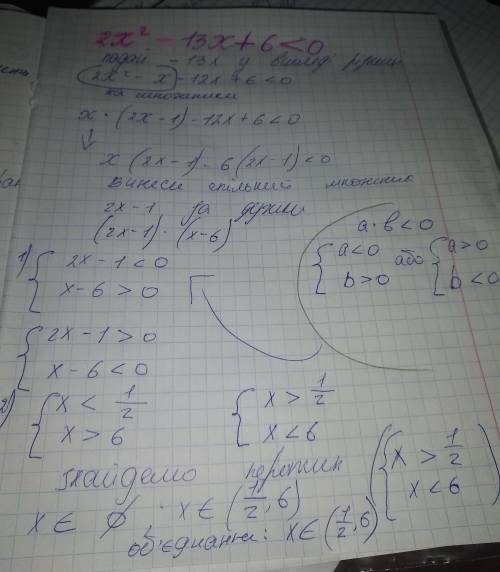 2x² - 13x + 6 < 0
подай -13x у вигляді різниці
2x² - x - 12x + 6 < 0
на множники
x · (2x-1) - 12x + 6 < 0
↓
x (2x-1) - 6 (2x-1) < 0
Винеси спільний множник
2x-1 за дужки
(2x-1) · (x-6)
a · b < 0
{ a < 0 або { a > 0
{ b > 0 { b < 0
1) { 2x - 1 < 0
{ x - 6 > 0
{ 2x - 1 > 0
{ x - 6 < 0
2) { x < 1/2 { x > 1/2
{ x > 6 { x < 6
знайдемо перетин ( { x > 1/2
{ x < 6 )
x ∈ ∅ . x ∈ (1/2, 6)
об'єднання: x ∈ (1/2, 6)